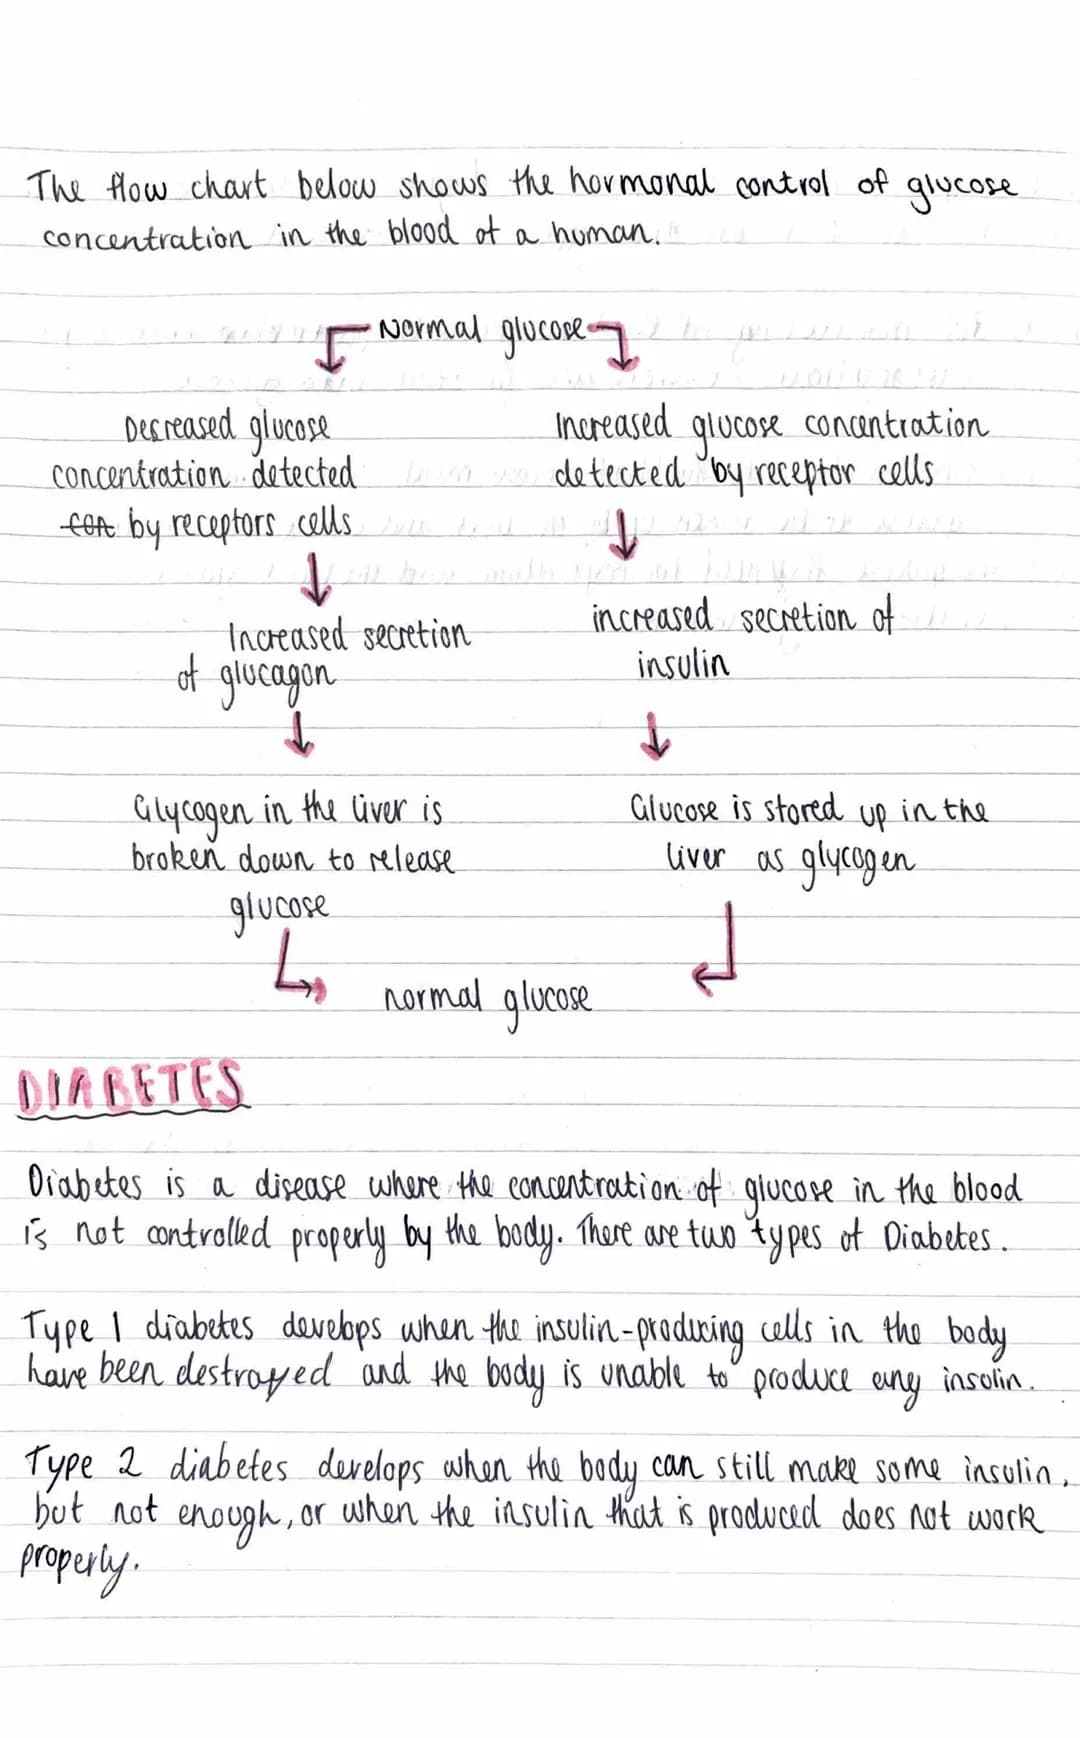 The flow chart below shows the hormonal control of glucose
concentration in the blood of a human.
Normal glucose
Decreased glucose
concentration detected
con by receptors cells
Increased secretion
of glucagon
Glycogen in the liver is
broken down to release
glucose
Increased glucose concentration
detected by receptor cells
increased secretion of
insulin
Glucose is stored up in the
liver as glycogen
normal glucose
DIABETES
Diabetes is a disease where the concentration of glucose in the blood
is not controlled properly by the body. There are two types of Diabetes.
Type 1 diabetes develops when the insulin-producing cells in the body
have been destroyed and the body is unable to produce any insulin.
Type 2 diabetes develops when the body can still make some insulin,
but not enough, or when the insulin that is produced does not work
properly.